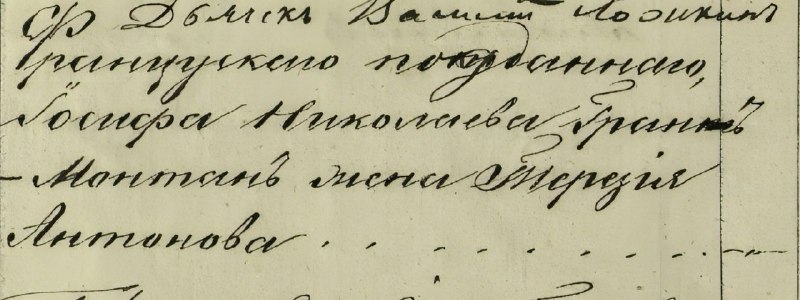 Дьячекъ Василий
Французскаго подданнаго,
Іосифа Николаева Гранъ
-Монтанъ жена Терезія
Антонова . . . . . . . . —